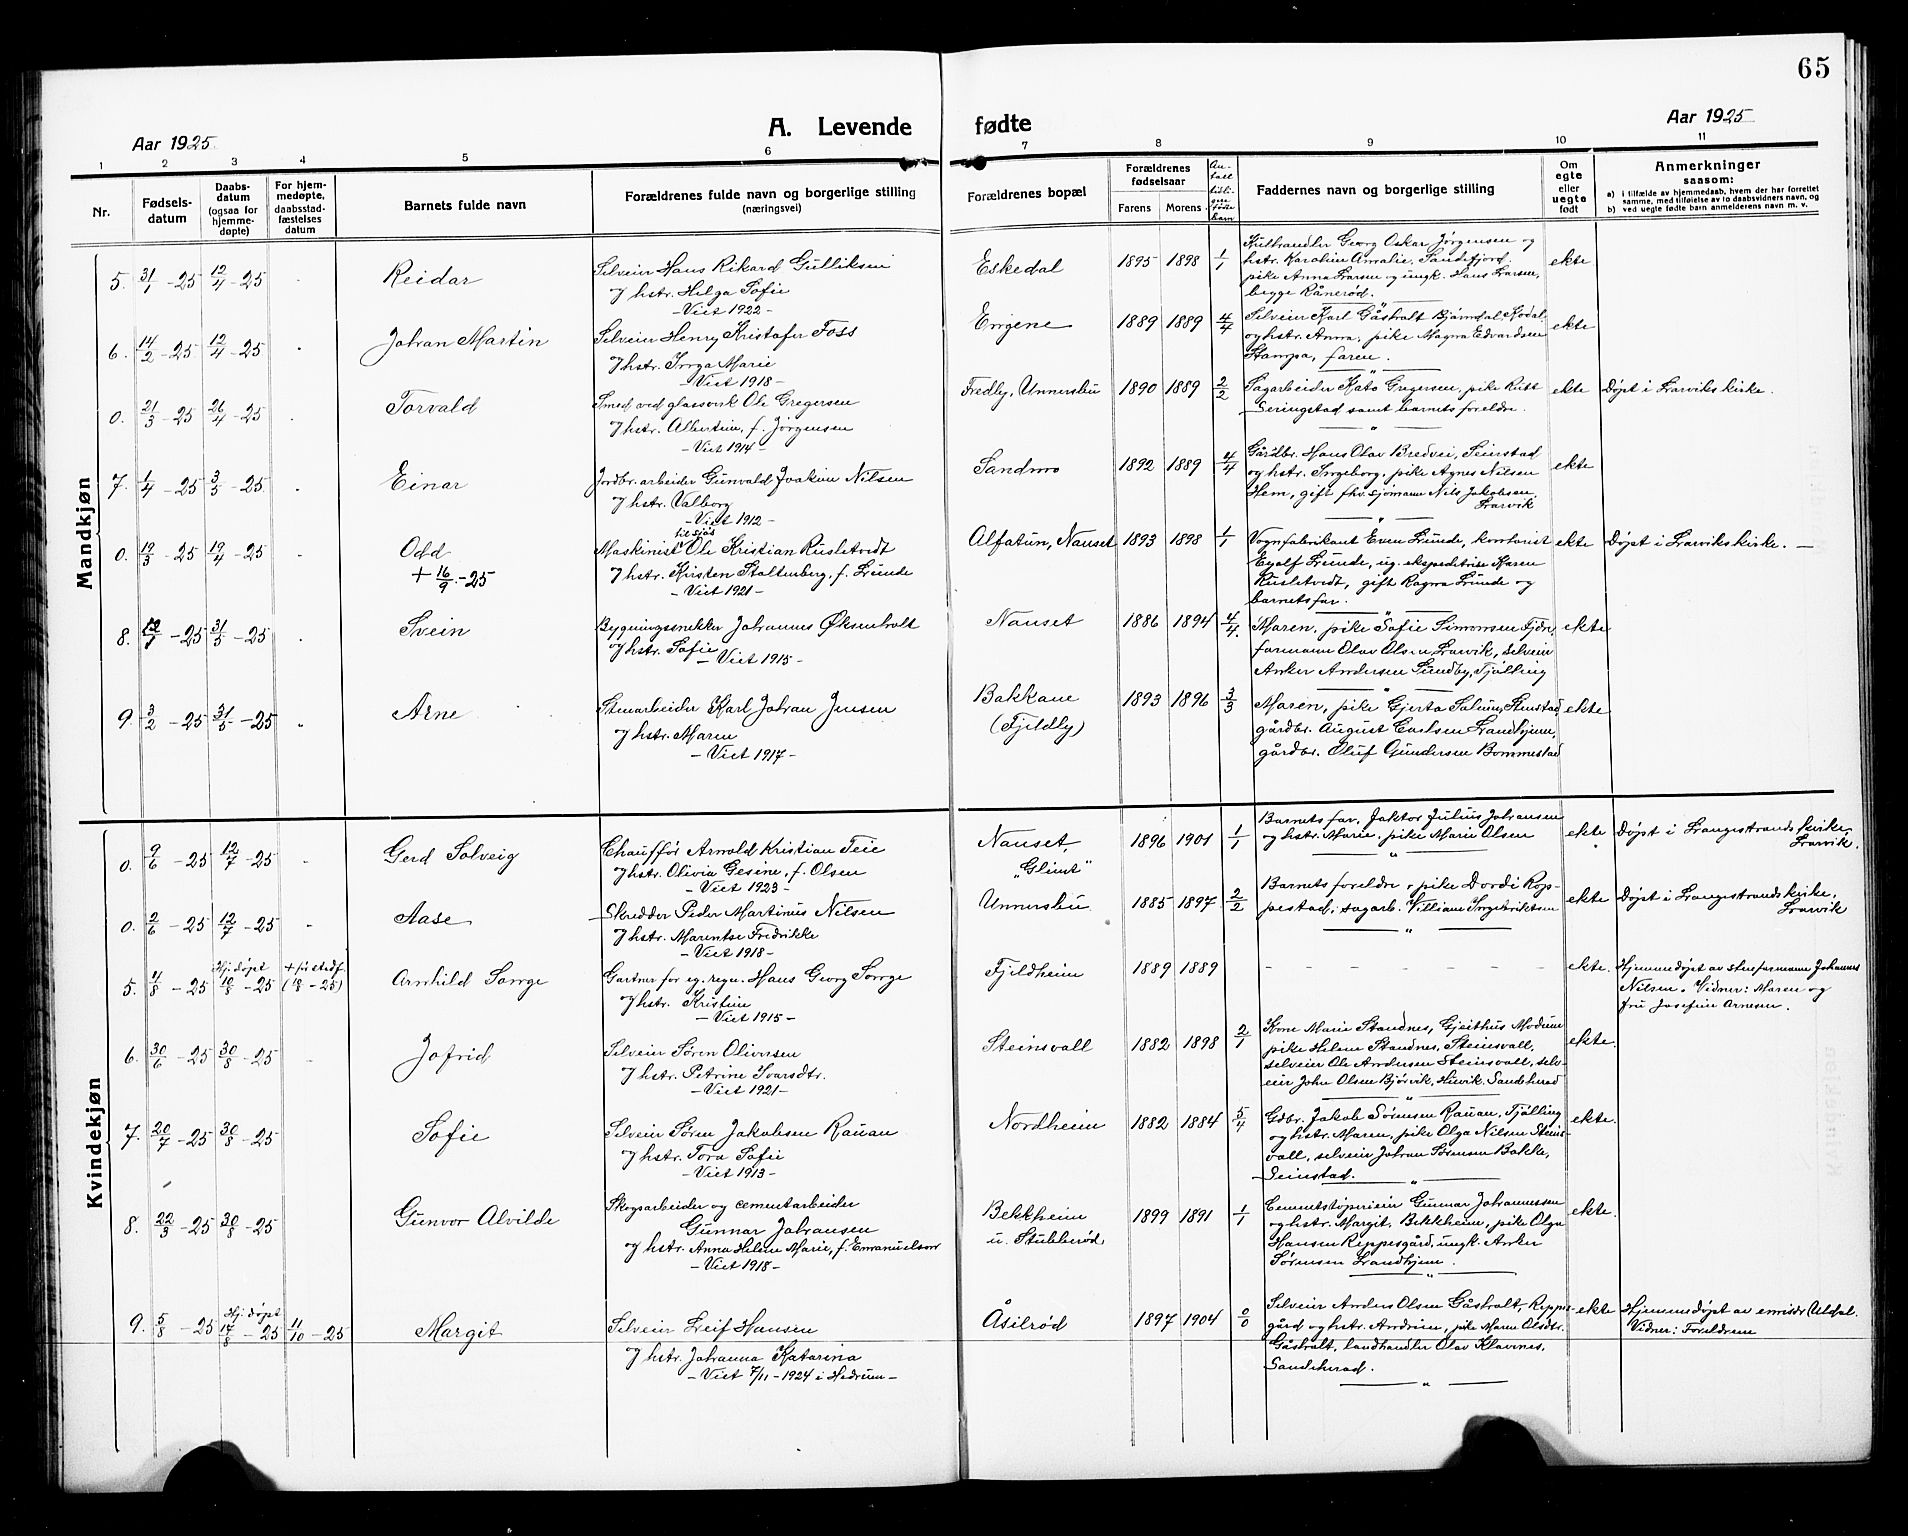 65
Aar 1925
A. Levende fødte
Aar 1925
1 2 3 4 5 6 7 8 9 10 11
Nr.
Fødsels-
datum
Daabs-
datum
(ogsaa for
hjemme-
døpte)
For hjem-
medøpte,
daabsstad-
fæstelses
datum
Barnets fulde navn
Forældrenes fulde navn og borgerlige stilling
(næringsvei)
Forældrenes bopæl
Forældrenes
fødselsaar
Farens
Morens
Faddernes navn og borgerlige stilling
Om
egte
eller
uegte
født
Anmerkninger
saasom:
a) i tilfælde av hjemmedaab, hvem der har forrettet
samme, med tilføielse av to daabsvidners navn, og
b) ved uegte fødte barn anmelderens navn m. v.
Mandkjøn
5. 31/1 - 25 12/4 - 25
Reidar
Selveier Hans Rikard Gulliksen
og hstr. Helga Sofie
- Viet 1922 -
Eskedal
1895 1898 1/1
Georg Oskar Jørgensen og
hstr. Karoline Amalie, Sandefjord,
pike Anna Larsen og ungk. Hans Larsen,
begge Rånerød.
ekte
6. 14/2 - 25 12/4 - 25
Johan Martin
Selveier Henry Kristofer Foss
og hstr. Inga Marie
- Viet 1918 -
Engene
1889 1889 4/4
Selveier Karl Gåsholt Bjørndal, Kodal,
og hstr. Anna, pike Magna Edvardsen
Stampa, faren.
ekte
0. 21/3 - 25 26/4 - 25
Torvald
Smed ved glassverk Ole Gregersen
og hstr. Albertine, f. Jørgensen
- Viet 1914 -
Fredly, Unnersbu
1890 1889 2/2
Sagarbeider Kato Gregersen, pike Rut
Seringstad samt barnets foreldre.
ekte
Døpt i Larviks kirke.
7. 1/4 - 25 3/5 - 25
Einar
Jordbr. arbeider Gunvald Joakim Nilsen
og hstr. Valborg
- Viet 1912 -
Sandmo
1892 1889 4/4
Gårdbr. Hans Olav Bredvei, Seierstad
og hstr. Ingeborg, pike Agnes Nilsen
Hem, gift fhv. sjømann Nils Jakobsen,
Larvik
ekte
0. 19/3 - 25 19/4 - 25
Odd
+ 16/9 - 25
til sjøs
Maskinist Ole Kristian Rusletvedt
og hstr. Kirsten Stoltenberg, f. Lunde
- Viet 1921 -
Alfatun, Nanset
1893 1898 1/1
Vognfabrikant Even Lunde, kontorist
Eyolf Lunde, ug. ekspeditrise Karen
Rusletvedt, gift Ragna Lunde og
barnets far.
ekte
Døpt i Larviks kirke. —
8. - 25 31/5 - 25
Svein
Bygningssnekker Johannes Øksenholt
og hstr. Sofie
- Viet 1915 -
Nanset
1886 1894 4/4.
Moren, pike Sofie Simonsen Fjære,
formann Olav Olsen, Larvik, selveier
Anker Andersen Sundby, Tjølling
ekte
9. 3/2 - 25 31/5 - 25
Arne
Stenarbeider Karl Johan Jensen
og hstr. Maren
- Viet 1917 -
Bakkane
(Fjeldly)
1893 1896 3/3
Moren, pike Gjerta Solum, Stenstad,
gårdbr. August Carlsen Landhjem,
gårdbr. Oluf Gundersen Bommestad
ekte
Kvindekjøn
0. 9/6 - 25 12/7 - 25
Gerd Solveig
Chauffør Arnold Kristian Teie
og hstr. Olivia Gesine, f. Olsen
- Viet 1923 -
Nanset
"Glimt"
1896 1901 1/1
Barnets far, faktor Julius Johansen
og hstr. Marie, pike Marie Olsen
ekte
Døpt i Langestrands kirke,
Larvik.
0. 2/6 - 25 12/7 - 25
Aase
Skredder Peder Martinus Nilsen
og hstr. Marentse Fredrikke
- Viet 1918 -
Unnersbu
1885 1897 2/2
Barnets foreldre, pike Dordi Rop-
pestad, sagarb. William Ingebriktsen
ekte
Døpt i Langestrands kirke,
Larvik
5. 4/8 - 25
Hj. døpt
10/8 - 25
(18/8 - 25)
Arnhild Sorge
Gartner for eg. regn. Hans Georg Sorge
og hstr. Kristine
- Viet 1915 -
Fjeldheim
1889 1889
- - - - - -
ekte.
Hjemmedøpt av stenformann Johannes
Nilsen. Vidner: Moren og
fru Josefine Arnesen.
6. 30/6 - 25 30/8 - 25
Jofrid
Selveier Søren Oliversen
og hstr. Petrine Ivarsdtr.
- Viet 1921 -
Steinsvall
1882 1898 2/1
Kone Marie Standnes, Gjeithus Modum
pike Helene Standnes, Steinsvall,
selveier Ole Andersen Steinsvall, selv-
eier John Olsen Bjørvik, Sandeherad
ekte.
7. 20/7 - 25 30/8 - 25
Sofie
Selveier Søren Jakobsen Rauan
og hstr. Tora Sofie
- Viet 1913 -
Nordheim
1882 1884 5/4
Gdbr. Jakob Sørensen Rauan, Tjølling
og hstr. Maren, pike Olga Nilsen Steins-
vall, selveier Johan Sørensen Bakke,
Seierstad.
ekte.
8. 22/3 - 25 30/8 - 25
Gunvor Alvilde
Skogsarbeider og cementarbeider
Gunnar Johansen
og hstr. Anna Helene Marie, f. Emanuelson
- Viet 1918 -
Bekkheim
u. Stubberød,
1899 1891 1/1
Gunnar Johannessen
og hstr. Margit, Bekkheim, pike Olga
Hansen Reppesgård, ungk. Anker
Sørensen Landhjem.
ekte.
9. 5/8 - 25
Hj. døpt
17/8 - 25
11/10 - 25
Margit
Selveier Leif Hansen
og hstr. Johanna Katarina
- Viet 7/11 - 1924 i Hedrum -
Åsilrød
1897 1904 0/0
Selveier Anders Olsen Gåsholt, Reppes-
gård og hstr. Andrine, pike Maren Olsdtr.
Gåsholt, landhandler Olav Klavenes,
Sandeherad.
ekte
Hjemmedøpt av emissær Uldal.
Vidner: Foreldrene